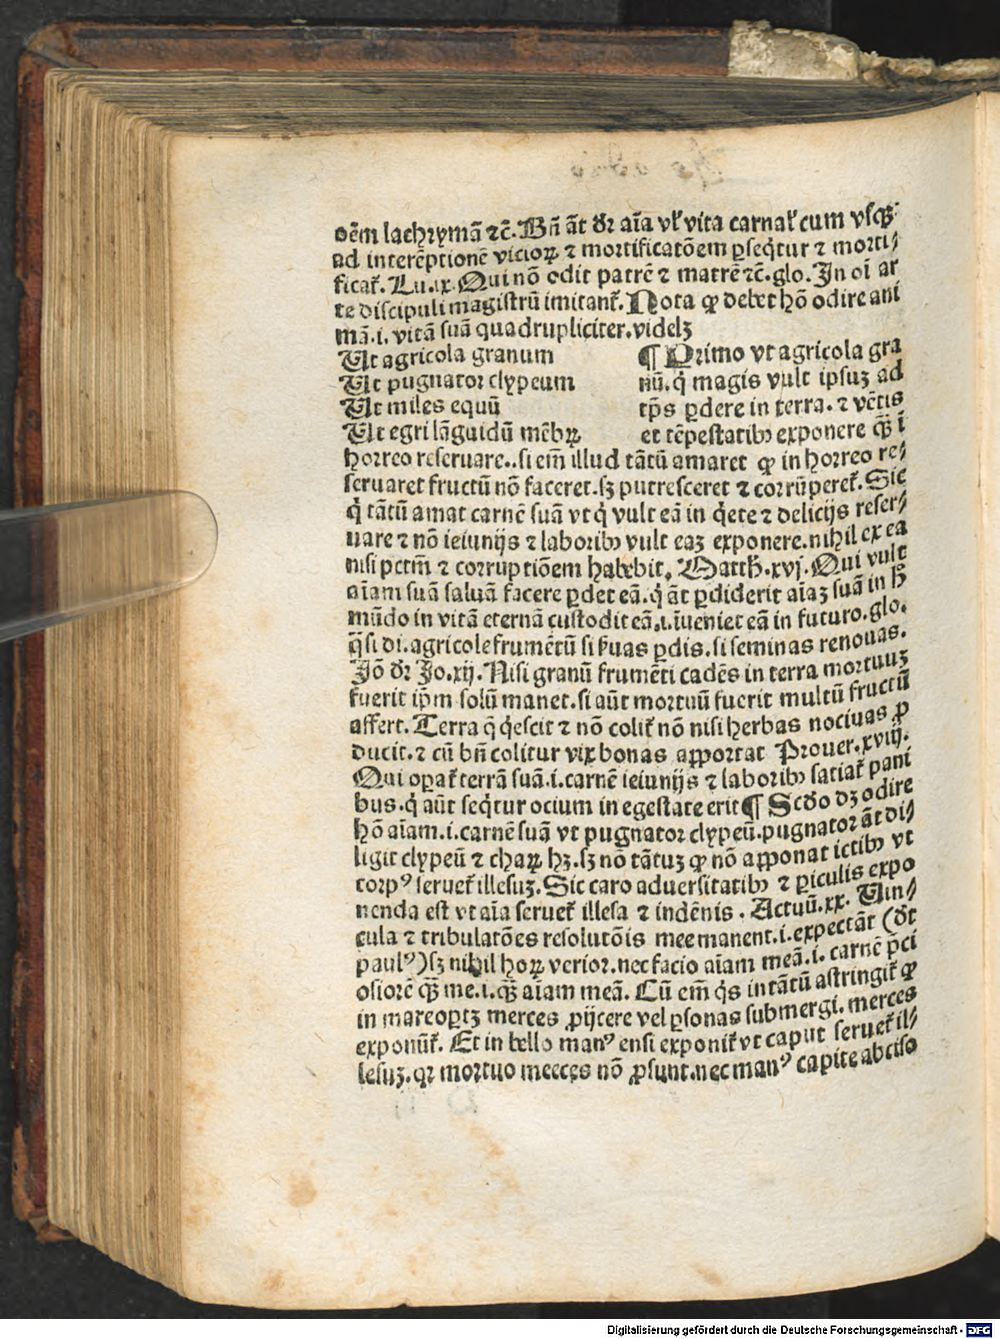 oēm lachrymā ⁊č. Bn̄ āt dr̄ aīa vl̓ vita carnal̓ cum vſqꝫ
ad interēptionē vicioꝝ ⁊ mortificatōem ꝑſeq̇tur ⁊ morti⸗
ficat̓. Lu.ix. Qui nō odit patrē ⁊ matrē ⁊č. glo. In oī ar
te diſcipuli magiſtrū imitant̓. Nota ꝙ debet hō odire ani
mā.i. vitā ſuā quadrupliciter. videlꝫ
Ut agricola granum
Ut pugnator clypeum
Ut miles equū
Ut egri lāguidū mēbꝝ
¶ Primo vt agricola gra
nū. q̇ magis vult ipſuꝫ ad
tp̄s ꝑdere in terra. ⁊ vētis
et tēpeſtatibꝰ exponere qꝫ̄ ī
horreo reſeruare.. ſi em̄ illud tātū amaret ꝙ in horreo re⸗
ſeruaret fructū nō faceret. ſꝫ putreſceret ⁊ corrūperet̓. Sic
q̇ tātū amat carnē ſuā vt q̇ vult eā in q̇ete ⁊ delicijs reſer⸗
uare ⁊ nō ieiunijs ⁊ laboribꝰ vult eaꝫ exponere. nihil ex ea
niſi pctm̄ ⁊ corruptiōem habebit. Matth̄.xvj. Qui vult
aīam ſuā ſaluā facere ꝑdet eā. q̇ āt ꝑdiderit aīaꝫ ſuā in h̄
mūdo in vitā eternā cuſtodit eā.i. īueniet eā in futuro. glo.
q̄ſi di. agricole frumētū ſi ſuas ꝑdis. ſi ſeminas renouas.
Iō dr̄ Io.xij. Niſi granū frumēti cadēs in terra mortuuꝫ
fuerit ip̄m ſolū manet. ſi aūt mortuū fuerit multū fructū
affert. Terra q̄ q̇eſcit ⁊ nō colit̓ nō niſi herbas nociuas ꝓ
ducit. ⁊ cū bn̄ colitur vix bonas apportat Prouer.xviij.
Qui oꝑat̓ terrā ſuā.i. carnē ieiunijs ⁊ laboribꝰ ſatiat̓ pani
bus. q̇ aūt ſeq̇tur ocium in egeſtate erit ¶ Scd̄o dꝫ odire
hō aīam.i. carnē ſuā vt pugnator clypeū. pugnator āt di⸗
ligit clypeū ⁊ chaꝝ hꝫ. ſꝫ nō tātuꝫ ꝙ nō apponat ictibꝰ vt
corpꝰ ſeruet̓ illeſuꝫ. Sic caro aduerſitatibꝰ ⁊ ꝑiculis expo
nenda eſt vt aīa ſeruet̓ illeſa ⁊ indēnis. Actuū.xx. Uin⸗
cula ⁊ tribulatōes reſolutōis mee manent.i. expectāt (dr̄
paulꝰ) ſꝫ nihil hoꝝ verior. nec facio aīam meā.i. carnē p̄ci
oſiorē qꝫ̄ me.i. qꝫ̄ aīam meā. Cū em̄ q̇s in tātū aſtringit̓ ꝙ
in mare oꝑtꝫ merces ꝓijcere vel ꝑſonas ſubmergi. merces
exponūt̓. Et in bello manꝰ enſi exponit̓ vt caput ſeruet̓ il⸗
leſuꝫ. qꝛ mortuo meeces nō ꝓſunt. nec manꝰ capite abciſo
Digitalisierung gefördert durch die Deutsche Forschungsgemeinschaft - DFG